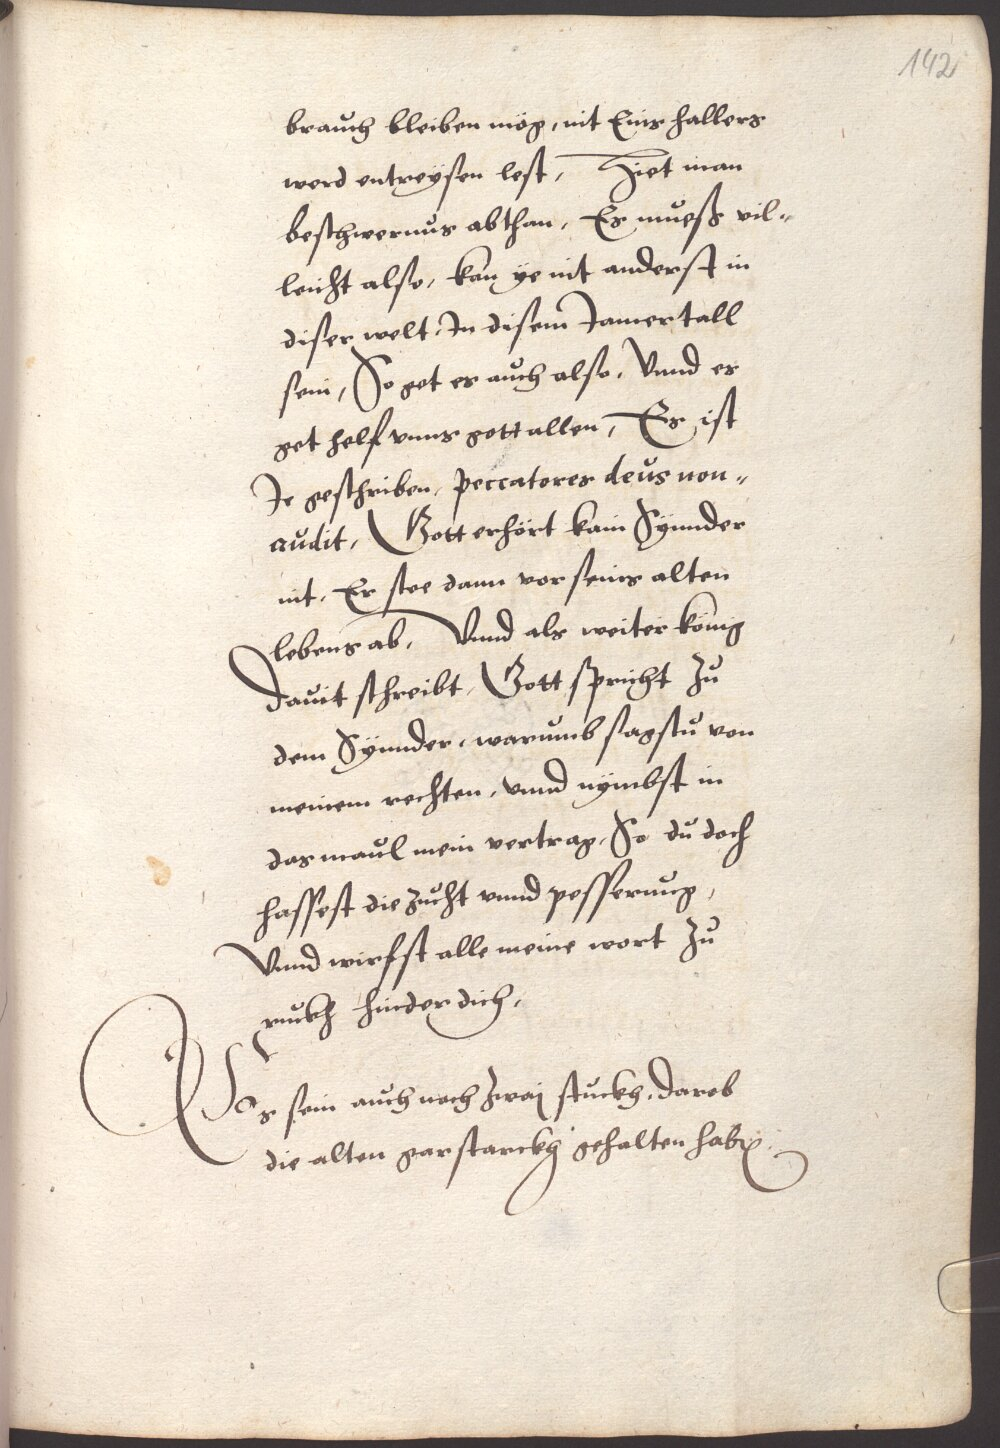 142
brauch bleiben mög, nit Eins hallers
werd entreysen lest, Hiet man
beschwernus abthan, Es mueß vil-
leicht also, kan ye nit anderst in
diser welt, In disem Jamertall
sein, So get es auch also, Vnnd es
get helf vnns gott allen, Es ist
Je geschriben, peccatores deus non-
audit, Gott erhört kain Synnder
nit, Er stee dann vor seins alten
lebens ab, Vnnd als weiter könig
Dauit schreibt, Gott spricht Zu
dem Synnder, warumb sagstu von
meinem rechten, vnnd nymbst in
das maul mein vertrag, So du doch
hassest die zucht vnnd pesserung,
Vnnd wirfst alle meine wort Zu
rukh hinder dich,
Es sein auch noch Zwaj stuckh, Dareb
die alten gar starckh gehalten habn